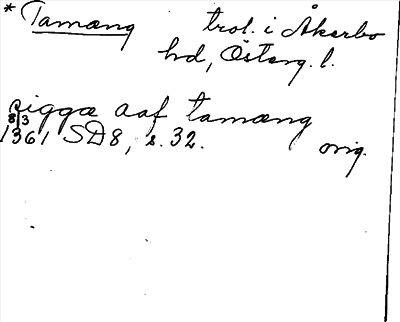 * Tamæng trol. i Åkerbo
hd, Österg. l.
sigga aaf tamæng
8/3
1361 SD8, s. 32. orig.